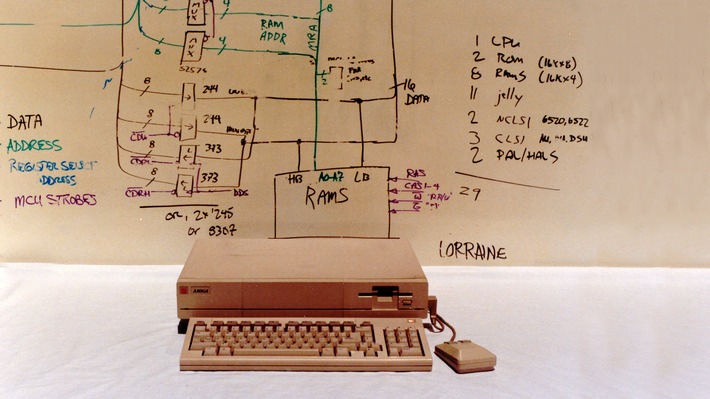 MUX
4
8
RAM
ADDR
MUX
8
4
MRA
S257s
2
8
244
16
DATA
8
244
CDR
8
373
CDR
8
373
CDRH
DDS
or, 2x '245
or 8307
DATA
ADDRESS
REGISTER SELECT
ADDRESS
MCU STROBES
HB A0-A7 LB
RAMS
RAS
CAS1-4
W
G
1 CPU
2 ROM (16Kx8)
8 RAMS (16Kx4)
11 jelly
2 NCLSI 6520, 6522
3 CLSI
2 PAL/HALS
29
LORRAINE
AMIGA